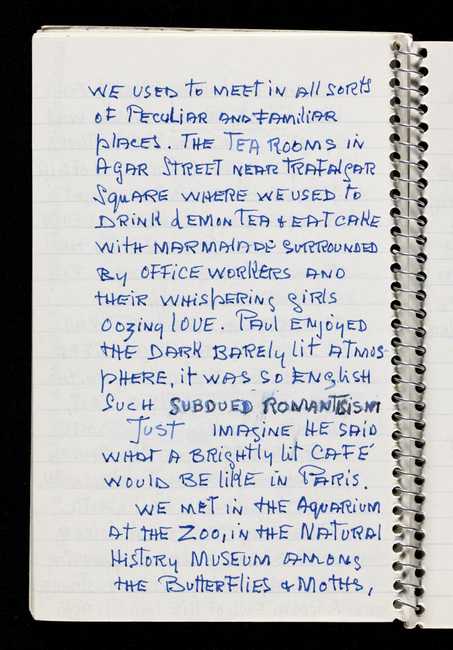 WE USED TO MEET IN All SORTS
OF PECULIAR AND FAMILIAR
PLACES. THE TEA ROOMS IN
AGAR STREET NEAR TRAFALGAR
SQUARE WHERE WE USED TO
DRINK LEMON TEA & EAT CAKE
WITH MARMALADE SURROUNDED
By OFFICE WORKERS AND
THEIR WHISPERING GIRLS
OOZING LOVE. PAUL ENJOYED
THE DARK BARELY LIT ATMOS-
PHERE, IT WAS SO ENGLISH
SUCH SUBDUED ROMANTISISM
JUST IMAGINE HE SAID
WHAT A BRIGHTLY LIT CAFÉ
WOULD BE LIKE IN PARIS.
WE MET IN THE AQUARIUM
AT THE ZOO, IN THE NATURAL
HISTORY MUSEUM AMONG
THE BUTTERFLIES & MOTHS,